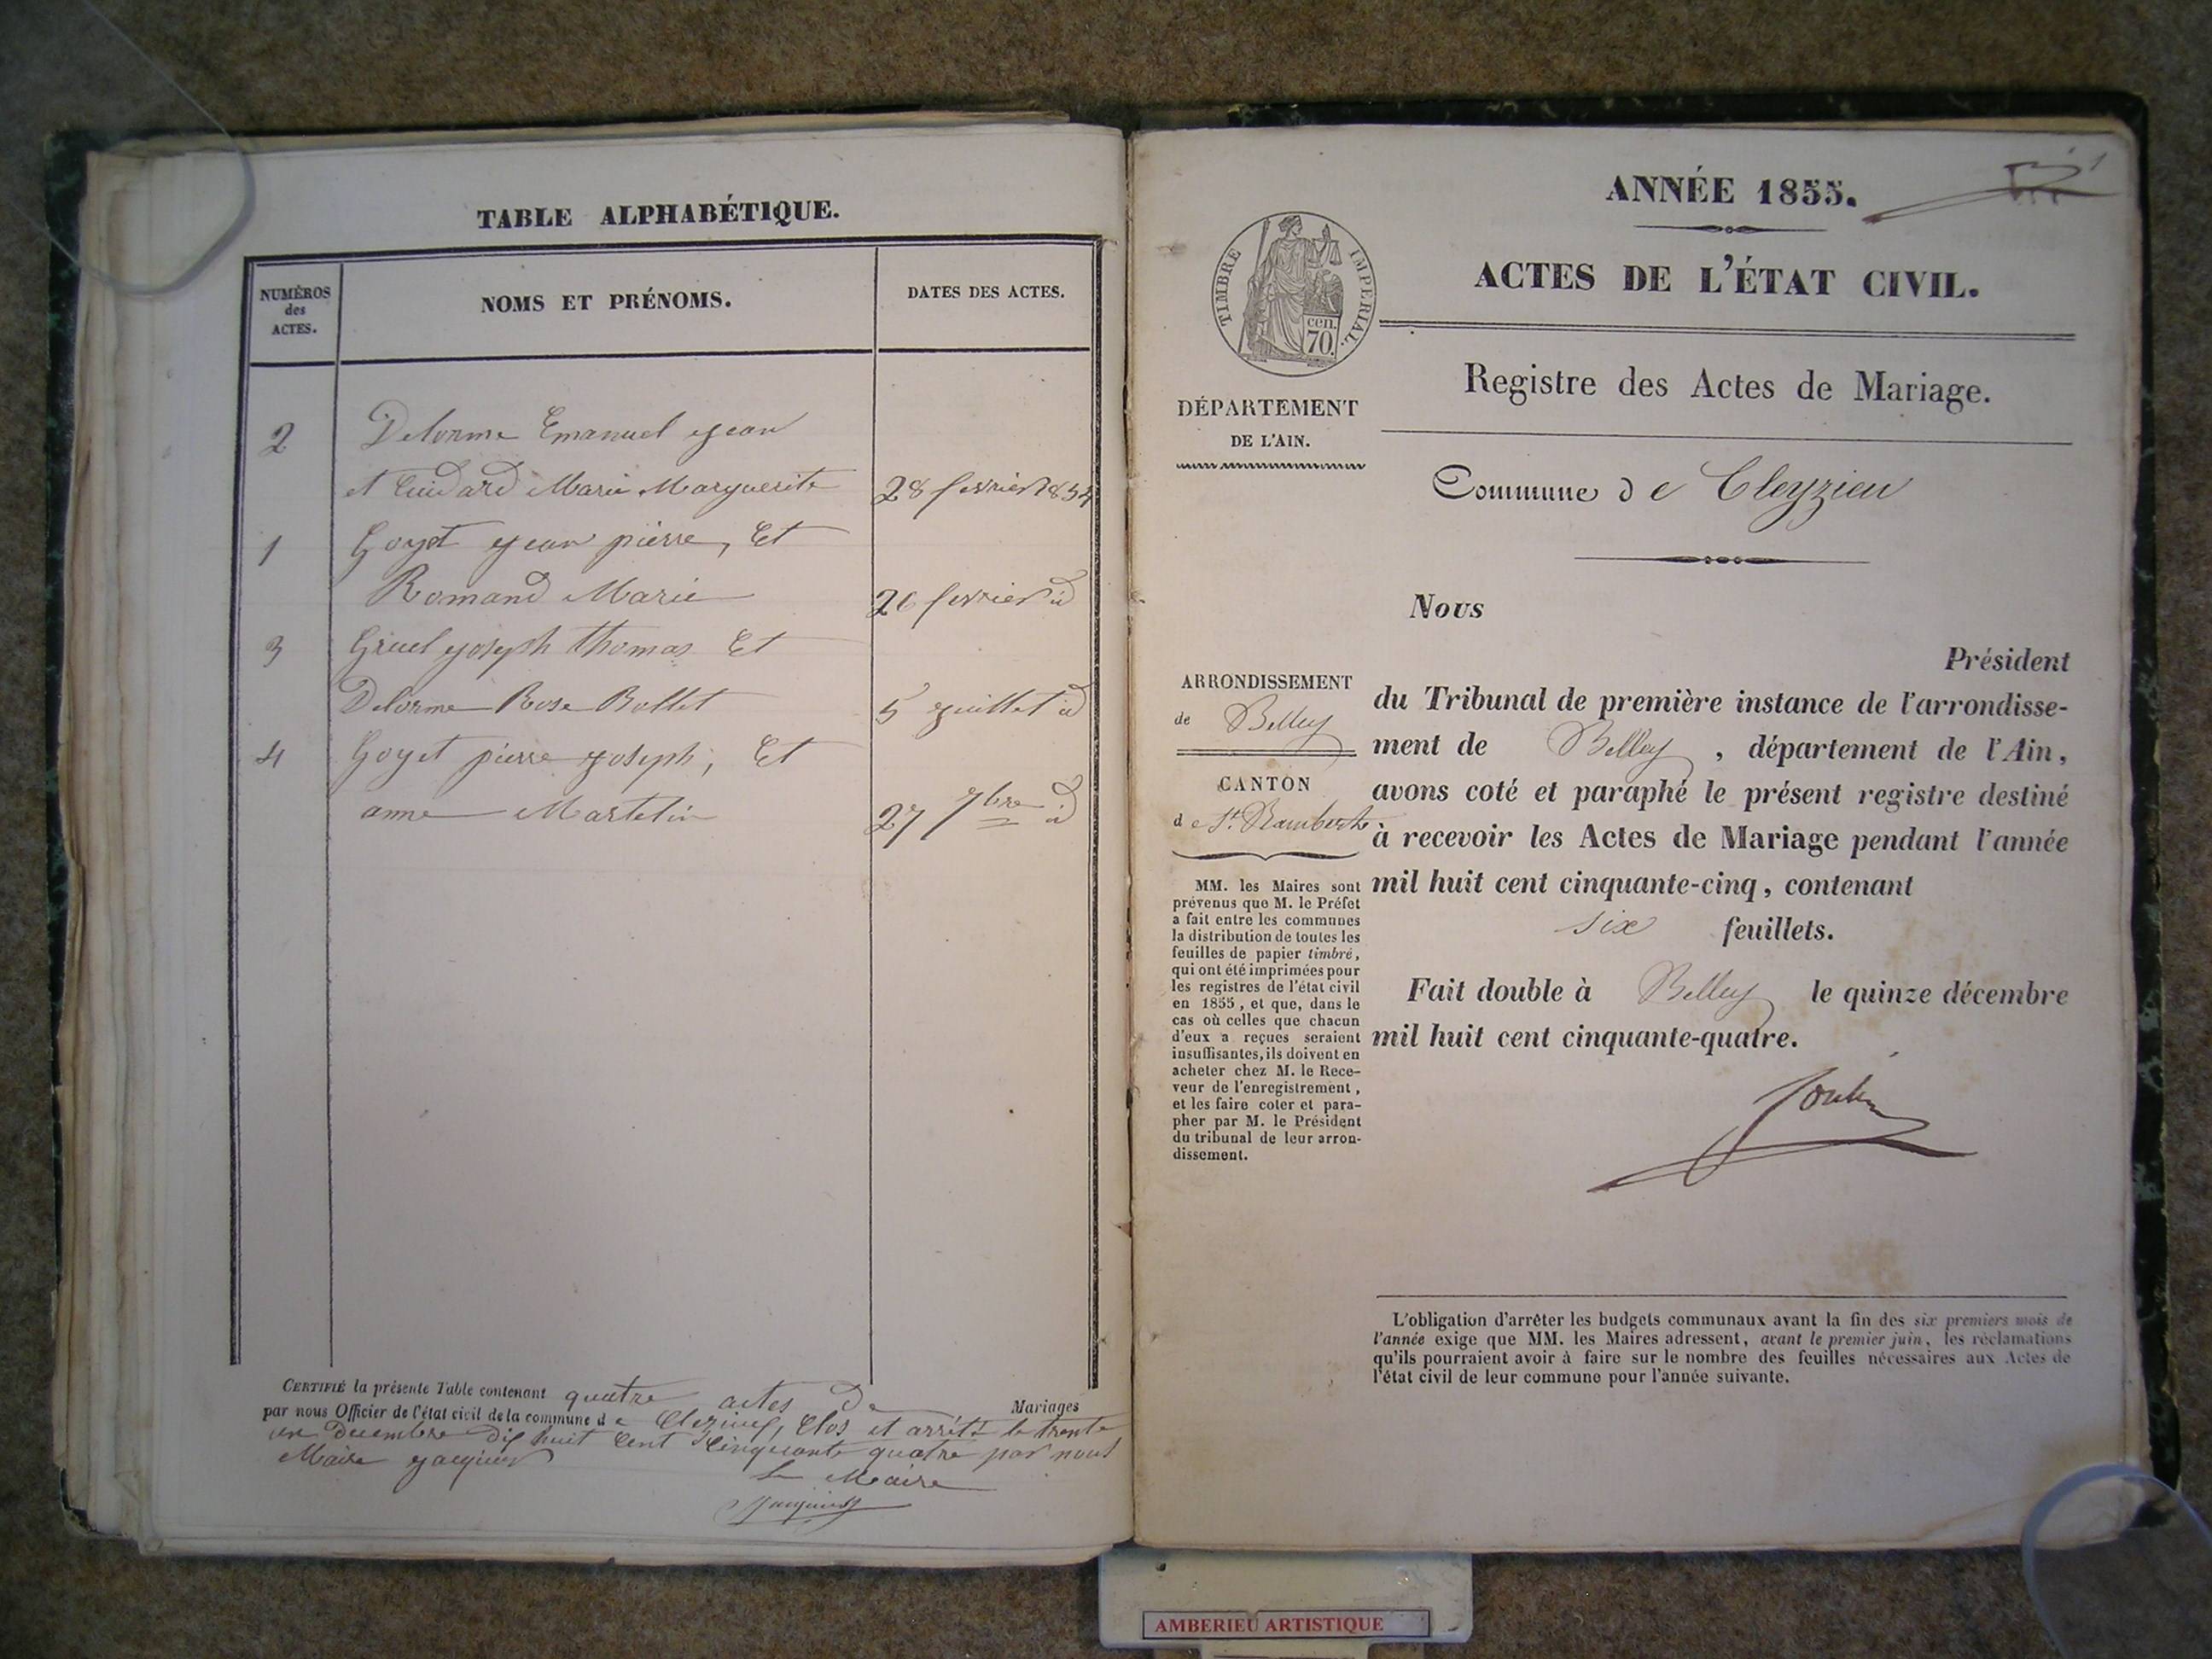 TABLE ALPHABÉTIQUE.
NUMÉROS des ACTES.
NOMS ET PRÉNOMS.
DATES DES ACTES.
2 Delorme Emanuel jean
et Guidard Marie Marguerite 28 fevrier 1854
1 Goyet jean pierre, Et
Romand Marie 26 fevrier id
3 Gruel joseph thomas Et
Delorme Rose Bollet 5 juillet id
4 Goyet pierre joseph, Et
anne Martelin 27 7bre id
CERTIFIÉ la présente Table contenant quatre actes de Mariages
par nous Officier de l'état civil de la commune de Clezieu, Clos et arrêté le trente
un Decembre dix huit Cent Cinquante quatre par nous
Maire jacquier
Le Maire
Jacquier
ANNÉE 1855.
ACTES DE L'ÉTAT CIVIL.
TIMBRE IMPÉRIAL.
cen.
70.
Registre des Actes de Mariage.
DÉPARTEMENT
DE L'AIN.
Commune de Cleyzieu
ARRONDISSEMENT
de Belley
CANTON
de St. Rambert
MM. les Maires sont
prévenus que M. le Préfet
a fait entre les communes
la distribution de toutes les
feuilles de papier timbré,
qui ont été imprimées pour
les registres de l'état civil
en 1855, et que, dans le
cas où celles que chacun
d'eux a reçues seraient
insuffisantes, ils doivent en
acheter chez M. le Rece-
veur de l'enregistrement,
et les faire coter et para-
pher par M. le Président
du tribunal de leur arron-
dissement.
Nous
Président
du Tribunal de première instance de l'arrondisse-
ment de Belley, département de l'Ain,
avons coté et paraphé le présent registre destiné
à recevoir les Actes de Mariage pendant l'année
mil huit cent cinquante-cinq, contenant
six feuillets.
Fait double à Belley le quinze décembre
mil huit cent cinquante-quatre.
L'obligation d'arrêter les budgets communaux avant la fin des six premiers mois de
l'année exige que MM. les Maires adressent, avant le premier juin, les réclamations
qu'ils pourraient avoir à faire sur le nombre des feuilles nécessaires aux Actes de
l'état civil de leur commune pour l'année suivante.
AMBERIEU ARTISTIQUE